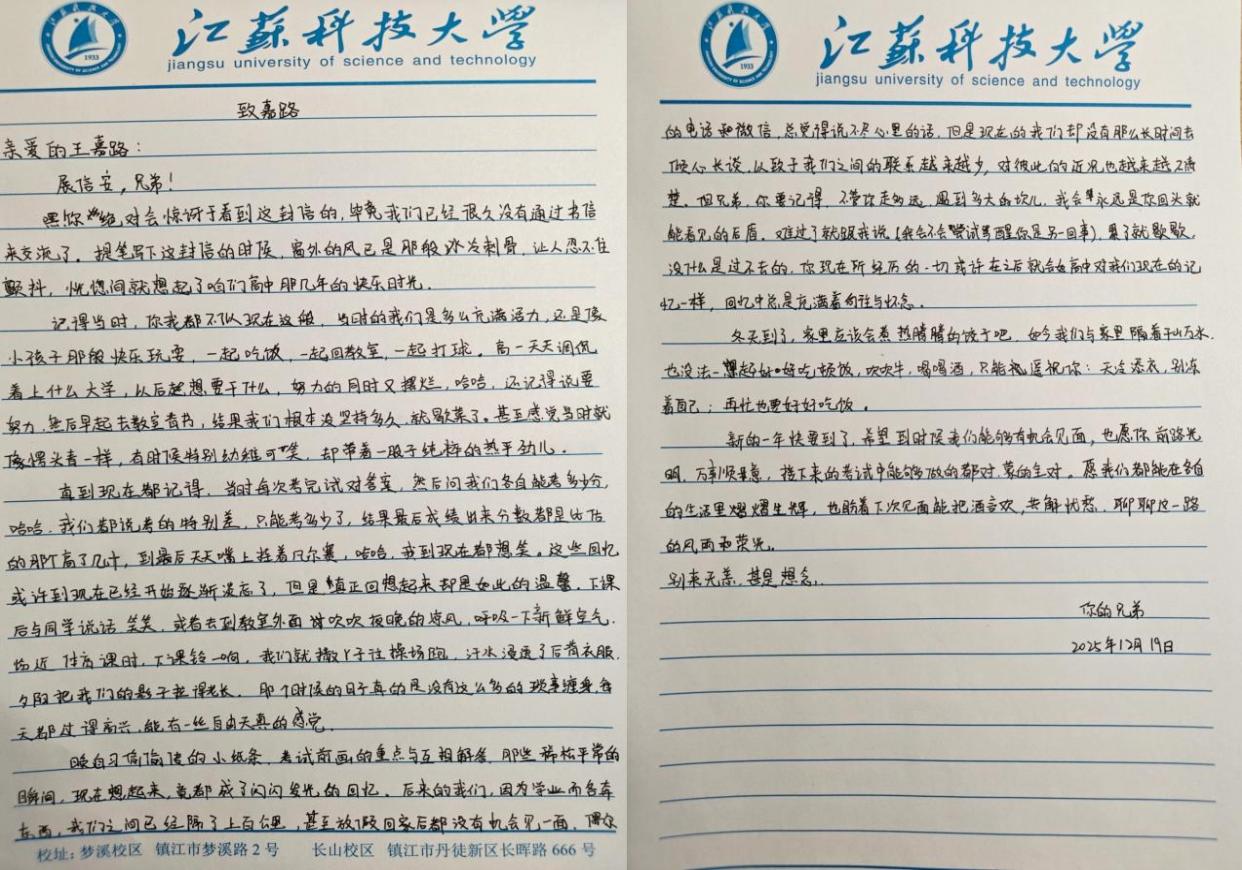 江苏科技大学
jiangsu university of science and technology
1933
致嘉路
亲爱的王嘉路：
展信安，兄弟！
嘿你绝对会惊讶于看到这封信的，毕竟我们已经很久没有通过书信
来交流了。提笔写下这封信的时候，窗外的风已是那般冰冷刺骨，让人忍不住
颤抖，恍惚间就想起了咱们高中那几年的快乐时光。
记得当时，你我都不似现在这般，当时的我们是多么充满活力，还是像
小孩子那般快乐玩耍，一起吃饭，一起回教室，一起打球。高一天天调侃
着上什么大学，以后想要干什么，努力的同时又摆烂，哈哈，还记得说要
努力，然后早起去教室看书，结果我们根本没坚持多久，就歇菜了。甚至感觉当时就
像愣头青一样，有时候特别幼稚可笑，却带着一股子纯粹的热乎劲儿。
直到现在都记得，当时每次考完试对答案，然后问我们各自能考多少分，
哈哈，我们都说考的特别差，只能考多少了，结果最后成绩出来分数都是比估
的那个高了几十，到最后天天嘴上挂着凡尔赛，哈哈，我到现在都想笑。这些回忆
或许到现在已经开始逐渐淡忘了，但是真正回想起来却是如此的温馨。下课
后与同学说话笑笑，或者去到教室外面吹吹夜晚的凉风，呼吸一下新鲜空气，
临近体育课时，下课铃一响，我们就撒丫子往操场跑，汗水浸透了后背衣服，
夕阳把我们的影子拉得老长。那个时候的日子真的是没有这么多的琐事缠身，每
天都过得高兴，能有一丝自由天真的感觉。
晚自习偷偷传的小纸条，考试前画的重点与互相解答，那些稀松平常的
瞬间，现在想起来，竟都成了闪闪发光的回忆。后来的我们，因为学业而各奔
东西，我们之间已经隔了上百公里，甚至放假回家后都没有机会见一面，偶尔
校址：梦溪校区 镇江市梦溪路2号 长山校区 镇江市丹徒新区长晖路666号
江苏科技大学
jiangsu university of science and technology
1933
的电话和微信，总觉得说不尽心里的话，但是现在的我们却没有那么长时间去
倾心长谈，以致于我们之间的联系越来越少，对彼此的近况也越来越不清
楚。但兄弟，你要记得，不管你走多远，遇到多大的坎儿，我会永远是你回头就
能看见的后盾。难过了就跟我说（我会不会尝试骂醒你是另一回事），累了就歇歇，
没什么是过不去的，你现在所经历的一切或许在之后就会如高中对我们现在的记
忆一样，回忆中总是充满着向往与怀念。
冬天到了，家里应该会煮热腾腾的饺子吧，如今我们与家里隔着千山万水，
也没法一起好好吃顿饭，吹吹牛，喝喝酒，只能遥祝你：天冷添衣，别冻
着自己；再忙也要好好吃饭。
新的一年快要到了，希望到时候我们能够有机会见面，也愿你前路光
明，万事顺意，接下来的考试中能够做的都对，蒙的全对。愿我们都能在各自
的生活里熠熠生辉，也盼着下次见面能把酒言欢，共解忧愁，聊聊这一路
的风雨和荣光。
别来无恙，甚是想念。
你的兄弟
2025年12月19日